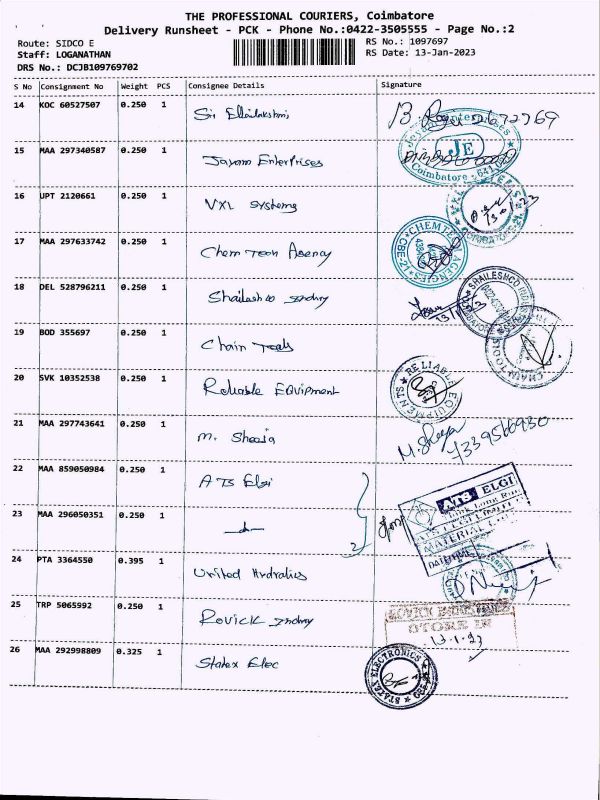 THE PROFESSIONAL COURIERS, Coimbatore
Delivery Runsheet - PCK - Phone No.:0422-3505555 - Page No.:2
Route: SIDCO E
RS No.: 1097697
Staff: LOGANATHAN
RS Date: 13-Jan-2023
DRS No.: DCJB109769702
S No Consignment No Weight PCS Consignee Details Signature
14 KOC 60527507 0.250 1
15 MAA 297340587 0.250 1 Jayam Enterprises
Coimbatore
JE
16 UPT 2120661 0.250 1 VXL Systems
17 MAA 297633742 0.250 1 Chem Teen Agency
18 DEL 528796211 0.250 1 Shaileshco Indury
SHAILESHCO
13/1/23
19 BOD 355697 0.250 1 Chain Tools
CHAIN TOOLS
20 SVK 10352538 0.250 1 Reliable Equipment
RELIABLE EQUIPMENTS
21 MAA 297743641 0.250 1 M. Sheeja
22 MAA 859050984 0.250 1 ATS Elgi
ATS ELGI
23 MAA 296050351 0.250 1
2
MATERIAL
24 PTA 3364550 0.395 1 United Hydralics
25 TRP 5065992 0.250 1 Rovick Indury
STORE IN
13.1.23
26 MAA 292998809 0.325 1 Statex Elec
STATEX ELECTRONICS